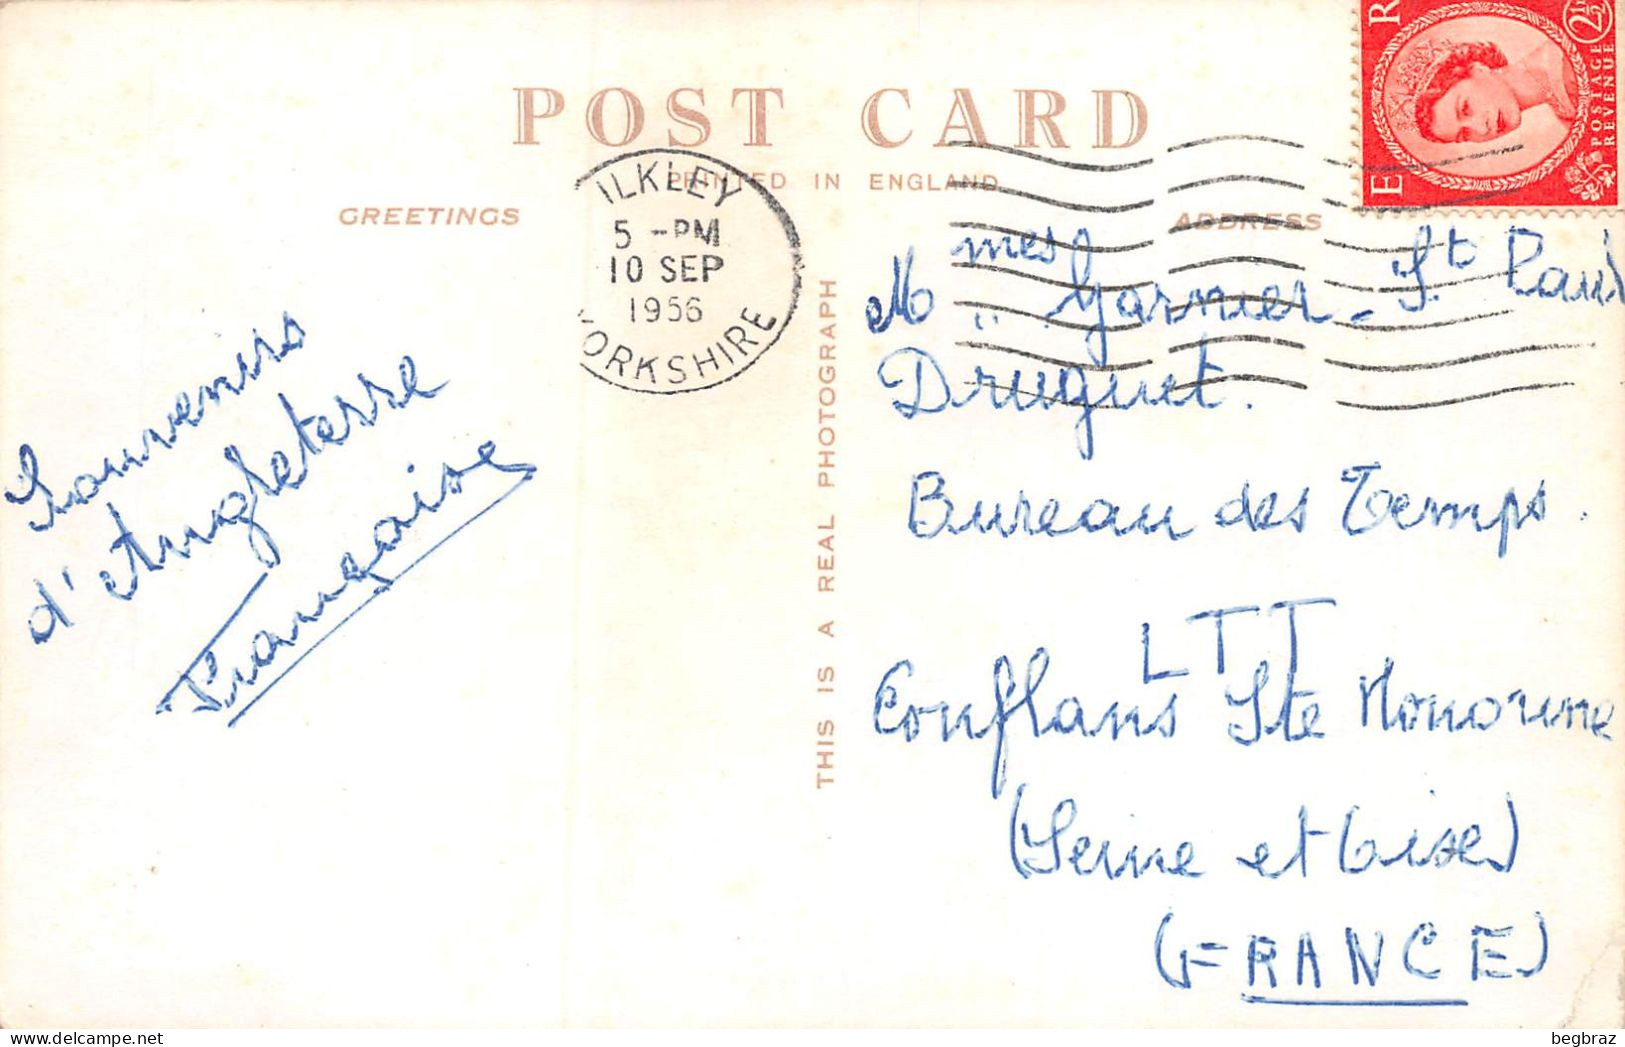 POST CARD
PRINTED IN ENGLAND
GREETINGS
ADDRESS
ILKLEY
5 -PM
10 SEP
1956
YORKSHIRE
E R
POSTAGE
REVENUE
2½
THIS IS A REAL PHOTOGRAPH
Souvenirs
d'Angleterre
Françoise
Mmes Garnier - St Paul
Druguet.
Bureau des Temps.
LTT
Conflans Ste Honorine
(Seine et Oise)
(FRANCE)
begbraz